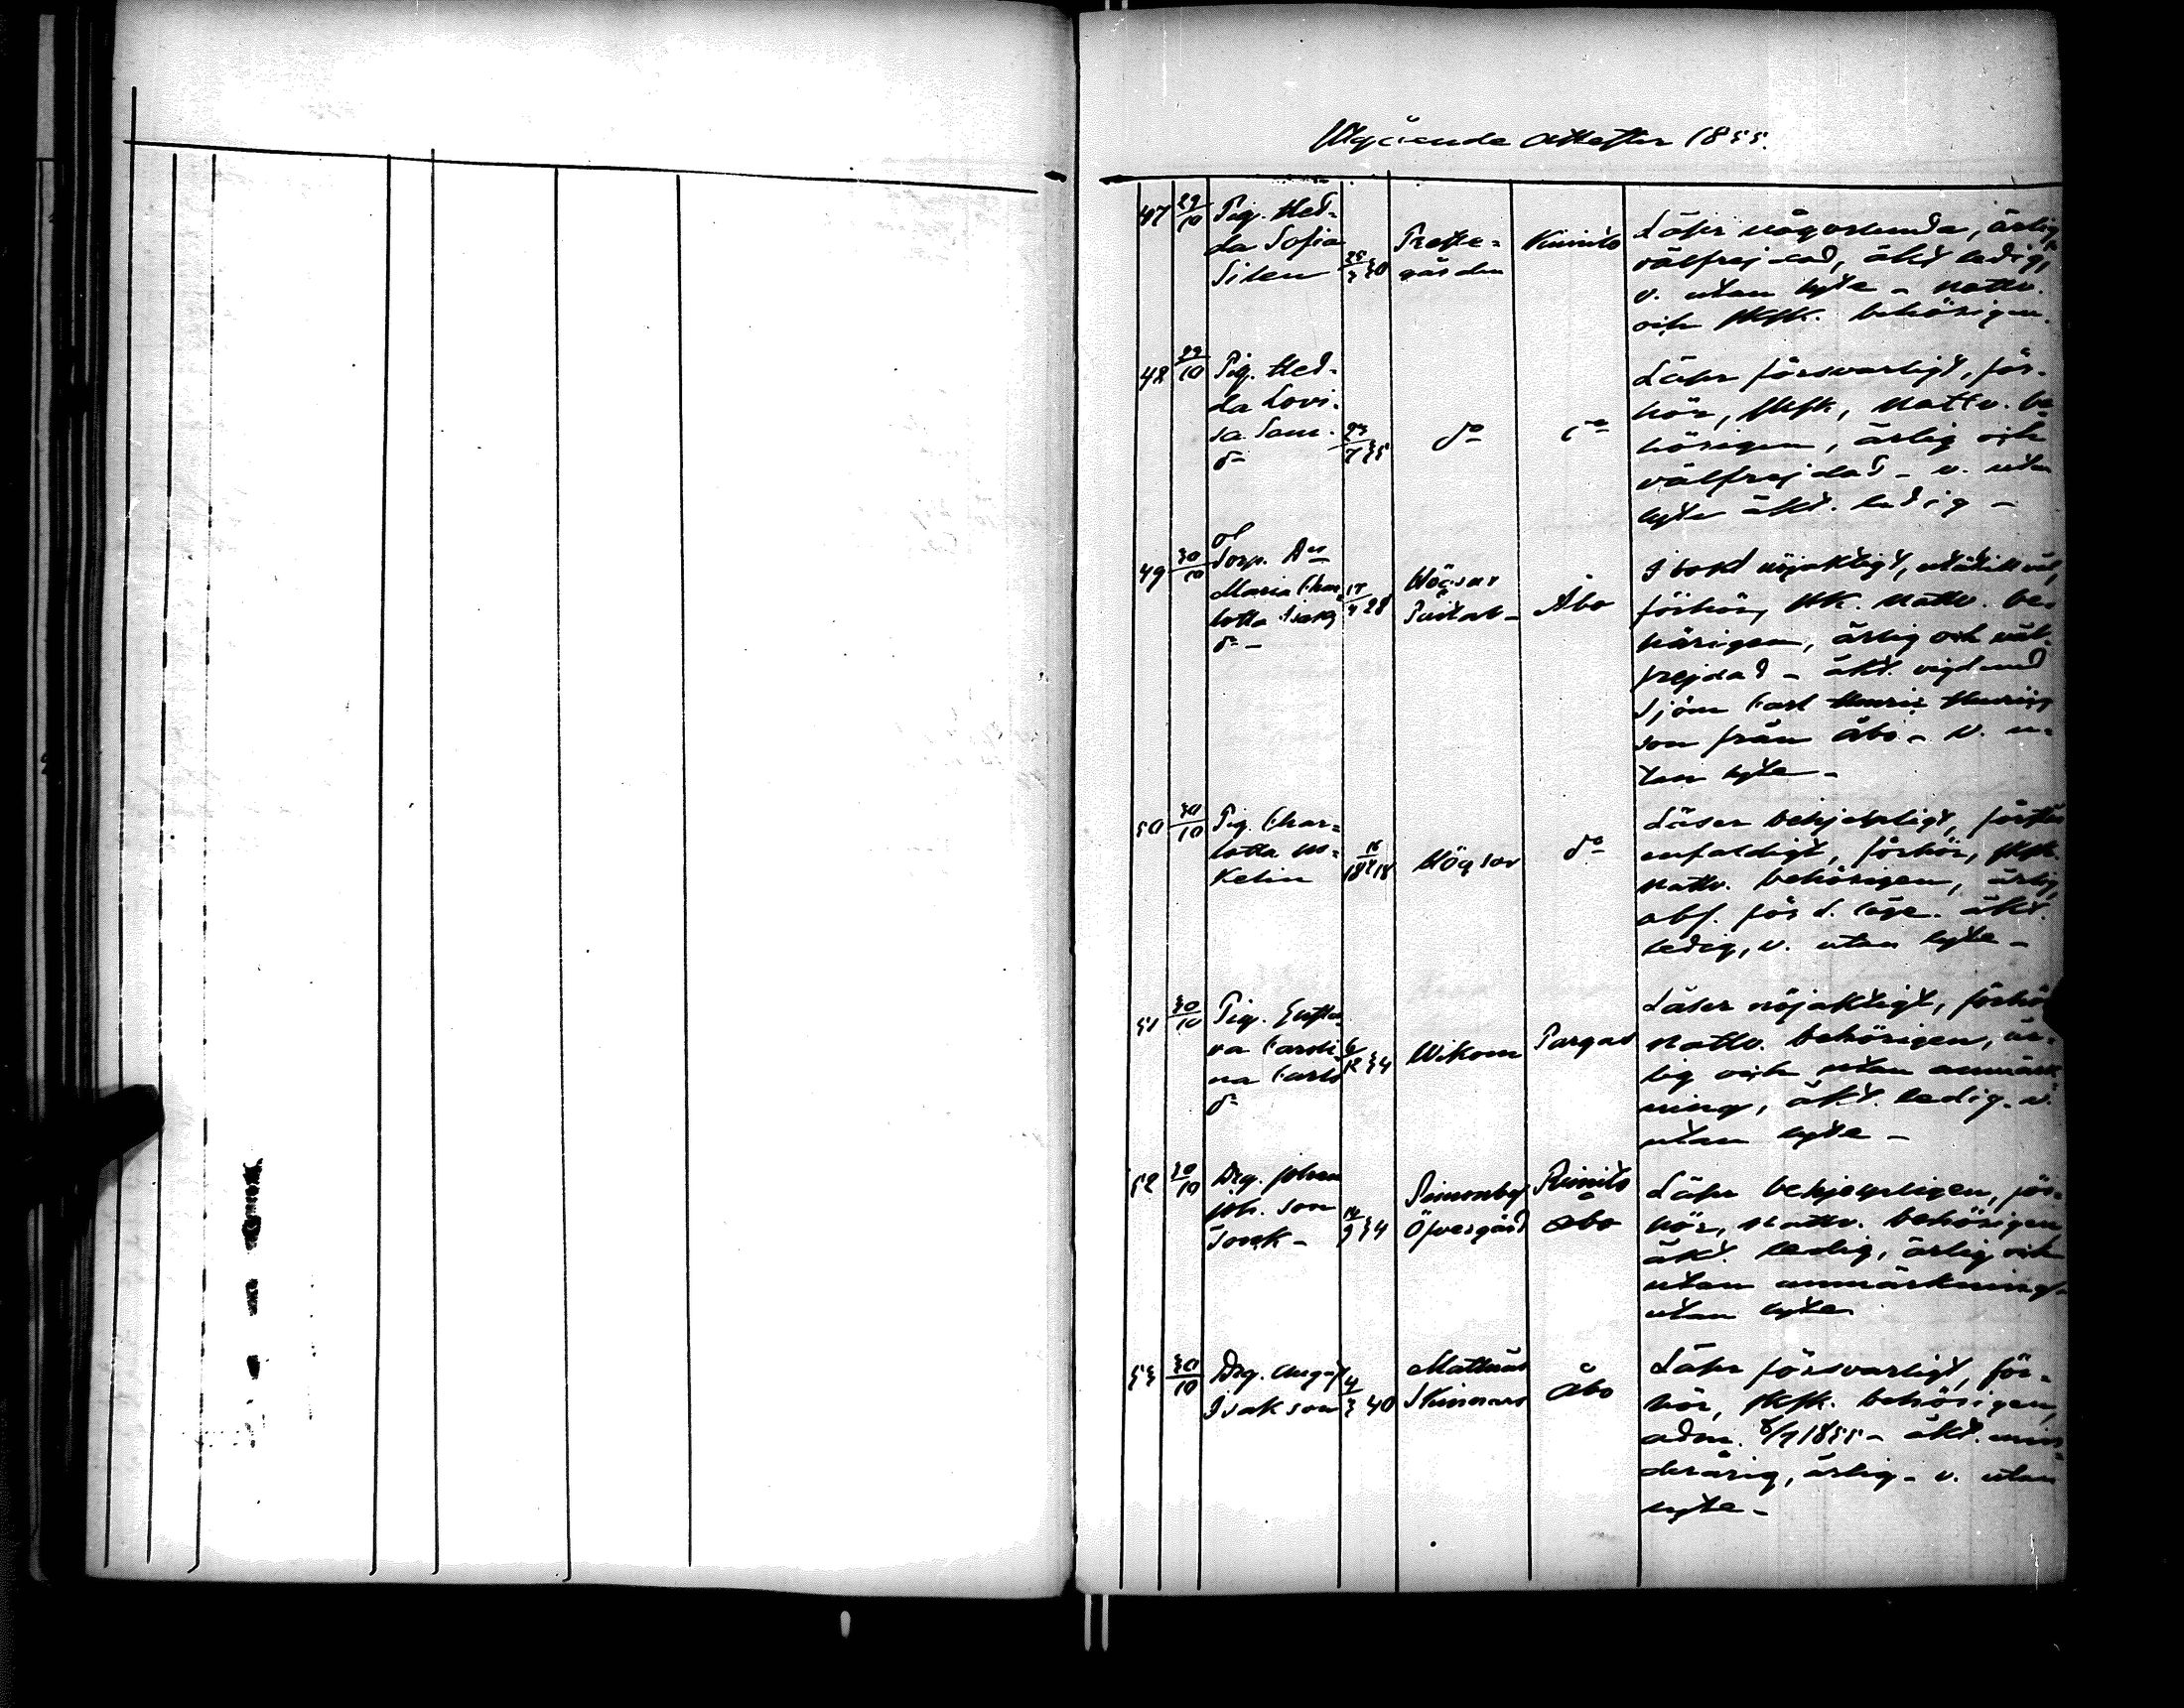 Utgående Attester 1855.
47 29/10 Pig. Hed-
da Sofia
Silen
25/3 30
Preste-
gården
Kimito
Läser någorlunda, ärlig,
välfrejdad, äkt. ledig,
v. utan lyte - nattv.
och skrft. behörigen.
48 29/10 Pig. Hed-
da Lovi-
sa Sam.
dr
23/7 35
do
do
Läser försvarligt, för-
hör, skrft, nattv. be-
hörigen, ärlig och
välfrejdad - v. utan
lyte äkt. ledig -
49 30/10
Torp. Dr
Maria Char-
lotta Isaks
dr -
17/4 28
Högsar
Åbo
I bokl nöjaktigt, utantill väl,
förhör, nattv. be-
hörigen, ärlig och väl-
frejdad - äkt. vigd med
Sjöm Carl Henric Henrics
son från Åbo - v. u-
tan lyte -
50 30/10 Pig. Char-
lotta
kelin
16/12 18
Högsar
do
Läser behjelpligt, förstår
enfaldigt, förhör, skrft.
nattv. behörigen, ärlig,
abs. för l. läge. äkt.
ledig, v. utan lyte -
51 30/10 Pig. Gusta-
va Caroli
na Carls
dr
6/12 34
Wikom
Pargas
Läser nöjaktigt, förhör
nattv. behörigen, är-
lig och utan anmärk
ning, äkt. ledig. v.
utan lyte -
52 30/10 Drg. Johan
Joh. son
Sonck -
14/9 34
Simonby
Öfvergård
Rimito
Åbo
Läser behjelpligen, för-
hör, nattv. behörigen
äkt. ledig, ärlig och
utan anmärkning -
utan lyte
53 30/10 Drg. August
Isakson
4/3 40
Mattnäs
Skinnars
Åbo
Läser försvarligt, för-
hör, skrft. behörigen,
adm. 8/7 1855 - äkt. min-
derårig, ärlig - v. utan
lyte -